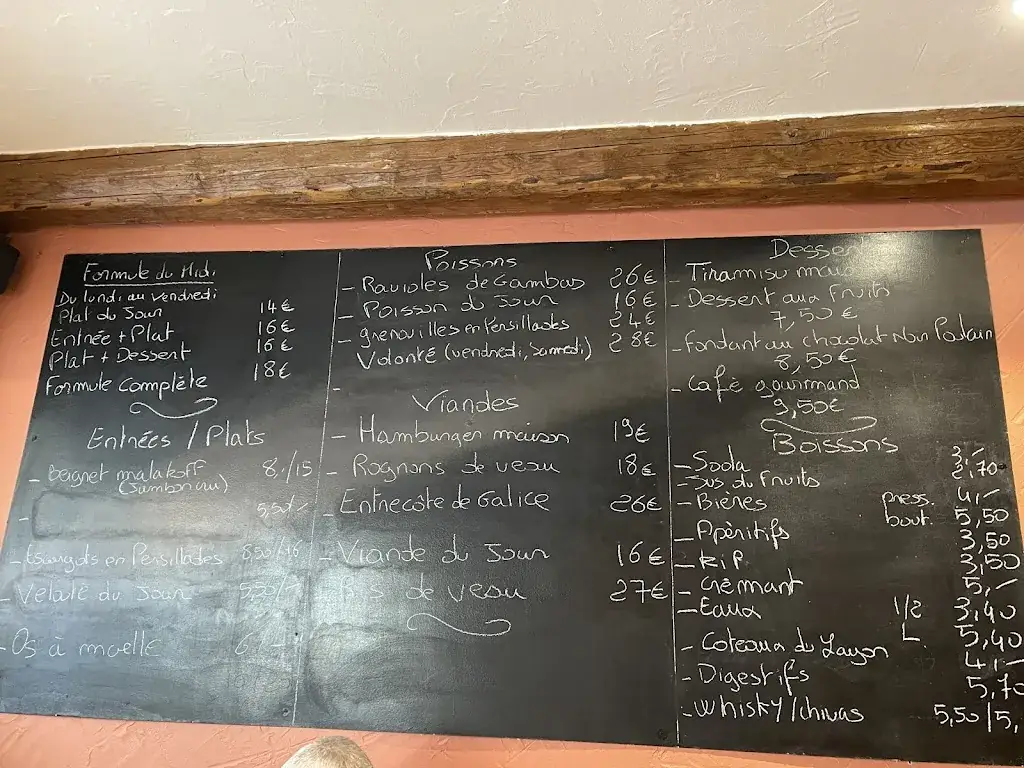 Formule du Midi
Du lundi au vendredi
Plat du Jour 14€
Entrée + Plat 16€
Plat + Dessert 16€
Formule Complète 18€
Entrées / Plats
- Beignet malakoff 8,/15
(Jambon cru)
-
5,50/
- Escargots en Persillades 8,50/16
- Velouté du Jour 5,50/
- Os à moelle 6
Poissons
- Ravioles de Gambas 26€
- Poisson du Jour 16€
- grenouilles en Persillades 24€
Volonté (vendredi, Samedi) 28€
-
Viandes
- Hamburger maison 19€
- Rognons de veau 18€
- Entrecôte de Galice 26€
- Viande du Jour 16€
de veau 27€
Dessert
- Tiramisu
- Dessert aux Fruits
7,50€
- Fondant au chocolat Noir
8,50€
- Café gourmand
9,50€
Boissons
- Soda 3,-
- Jus du Fruits 2,70
- Bières press. 4,-
bout. 5,50
- Apéritifs 3,50
- KIR 3,50
- Crémant 5,-
- Eaux 1/2 3,40
L 5,40
- Coteaux du Layon 4,-
- Digestifs 5,70
- Whisky/chivas 5,50/5,